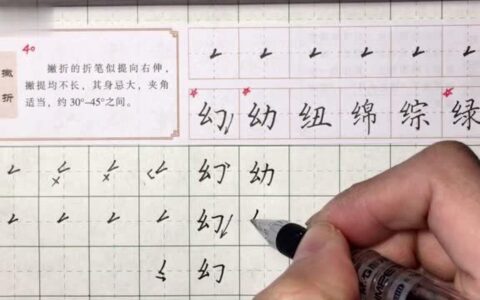 撇折
4°
撇折的折笔似提向右伸，
撇提均不长，其身忌大，夹角
适当，约 30°–45°之间。
幻 幼 纽 绵 综 绿
幻 幼
幻
幻